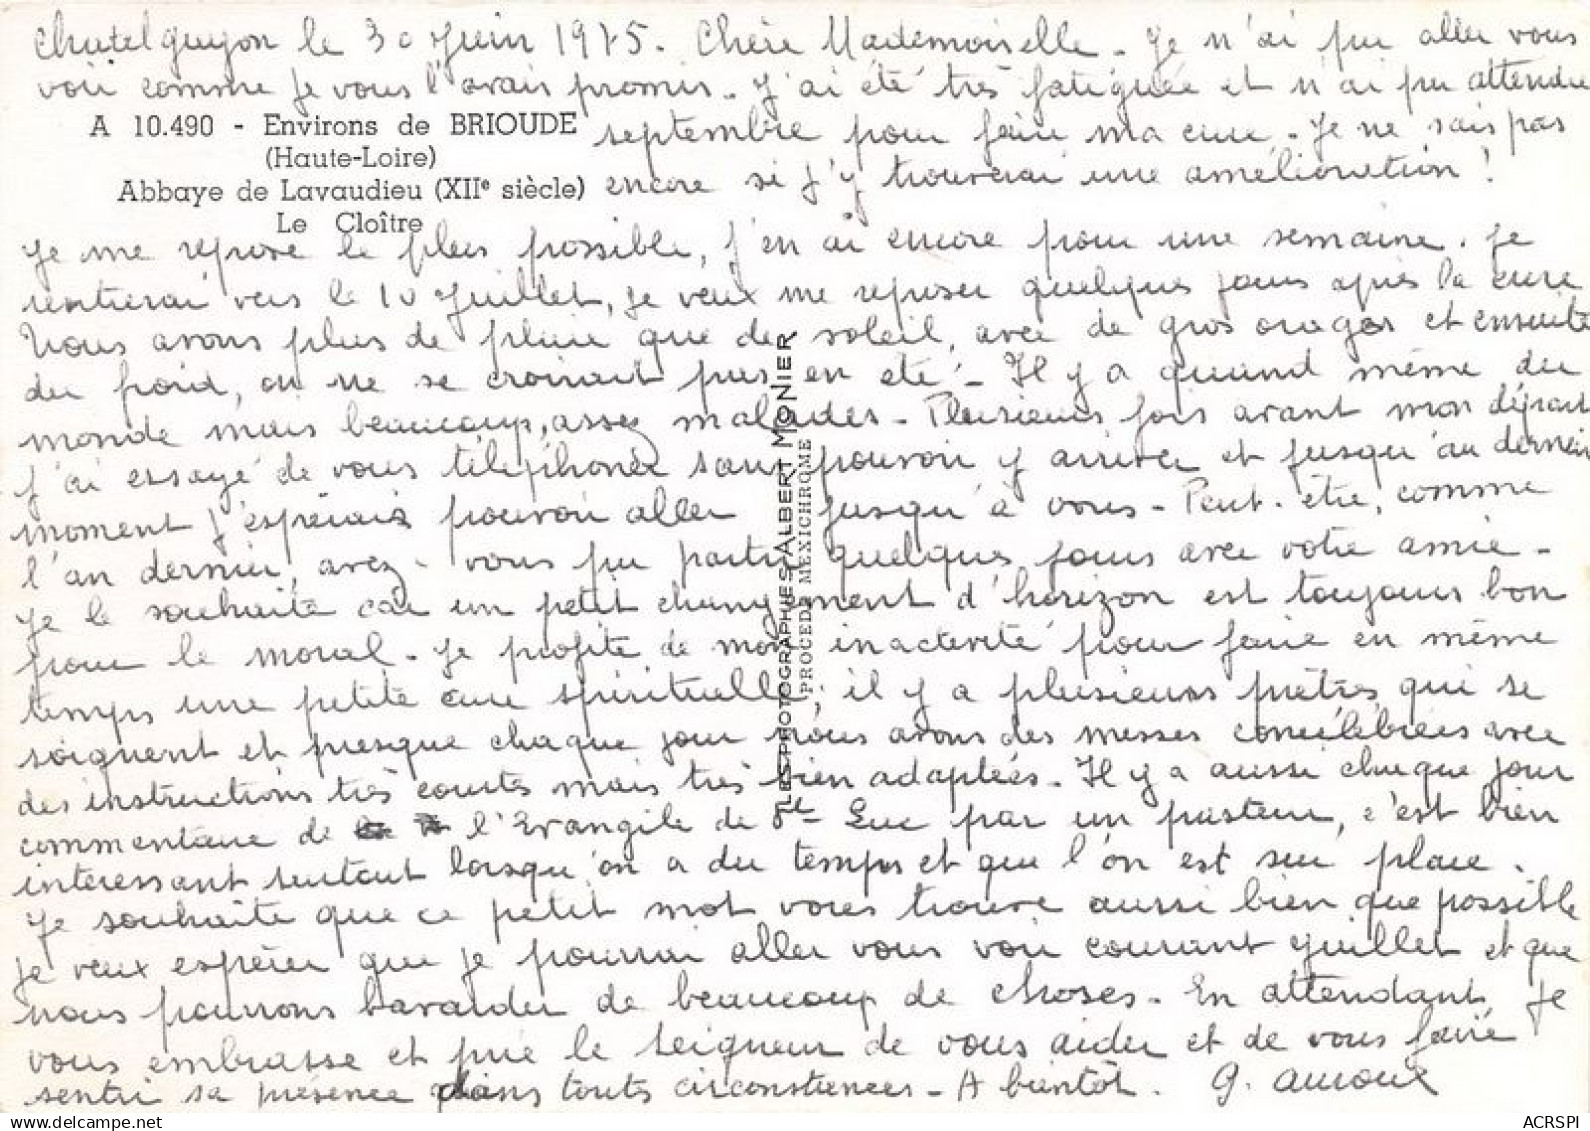 Chatelguyon le 30 Juin 1975. Chère Mademoiselle - Je n'ai pu aller vous
voir comme je vous l'avais promis - J'ai été très fatiguée et n'ai pu attendre
septembre pour faire ma cure - Je ne sais pas
encore si j'y trouverai une amélioration !
A 10.490 - Environs de BRIOUDE
(Haute-Loire)
Abbaye de Lavaudieu (XIIe siècle)
Le Cloître
Je me repose le plus possible, j'en ai encore pour une semaine. Je
rentrerai vers le 10 Juillet, je veux me reposer quelques jours après la cure
Nous avons plus de pluie que de soleil, avec de gros orages et ensuite
du froid, on ne se croirait pas en été - Il y a quand même du
monde mais beaucoup, assez malades - Plusieurs fois avant mon départ
j'ai essayé de vous téléphoner sans pouvoir y arriver et jusqu'au dernier
moment j'espérais pouvoir aller jusqu'à vous - Peut-être, comme
l'an dernier, avez-vous pu partir quelques jours avec votre amie -
Je le souhaite car un petit changement d'horizon est toujours bon
pour le moral - Je profite de mon inactivité pour faire en même
temps une petite cure spirituelle, il y a plusieurs prêtres qui se
soignent et presque chaque jour nous avons des messes concélébrées avec
des instructions très courtes mais très bien adaptées - Il y a aussi chaque jour
commentaire de l'Evangile de St Luc par un pasteur, c'est bien
intéressant surtout lorsqu'on a du temps et que l'on est sur place.
Je souhaite que ce petit mot vous trouve aussi bien que possible
je veux espérer que je pourrai aller vous voir courant juillet et que
nous pourrons bavarder de beaucoup de choses - En attendant je
vous embrasse et prie le Seigneur de vous aider et de vous faire
sentir sa présence dans toutes circonstances - A bientôt. G. Auroux
LES PHOTOGRAPHIES ALBERT MONIER
PROCÉDÉ MEXICHROME
ACRSPI